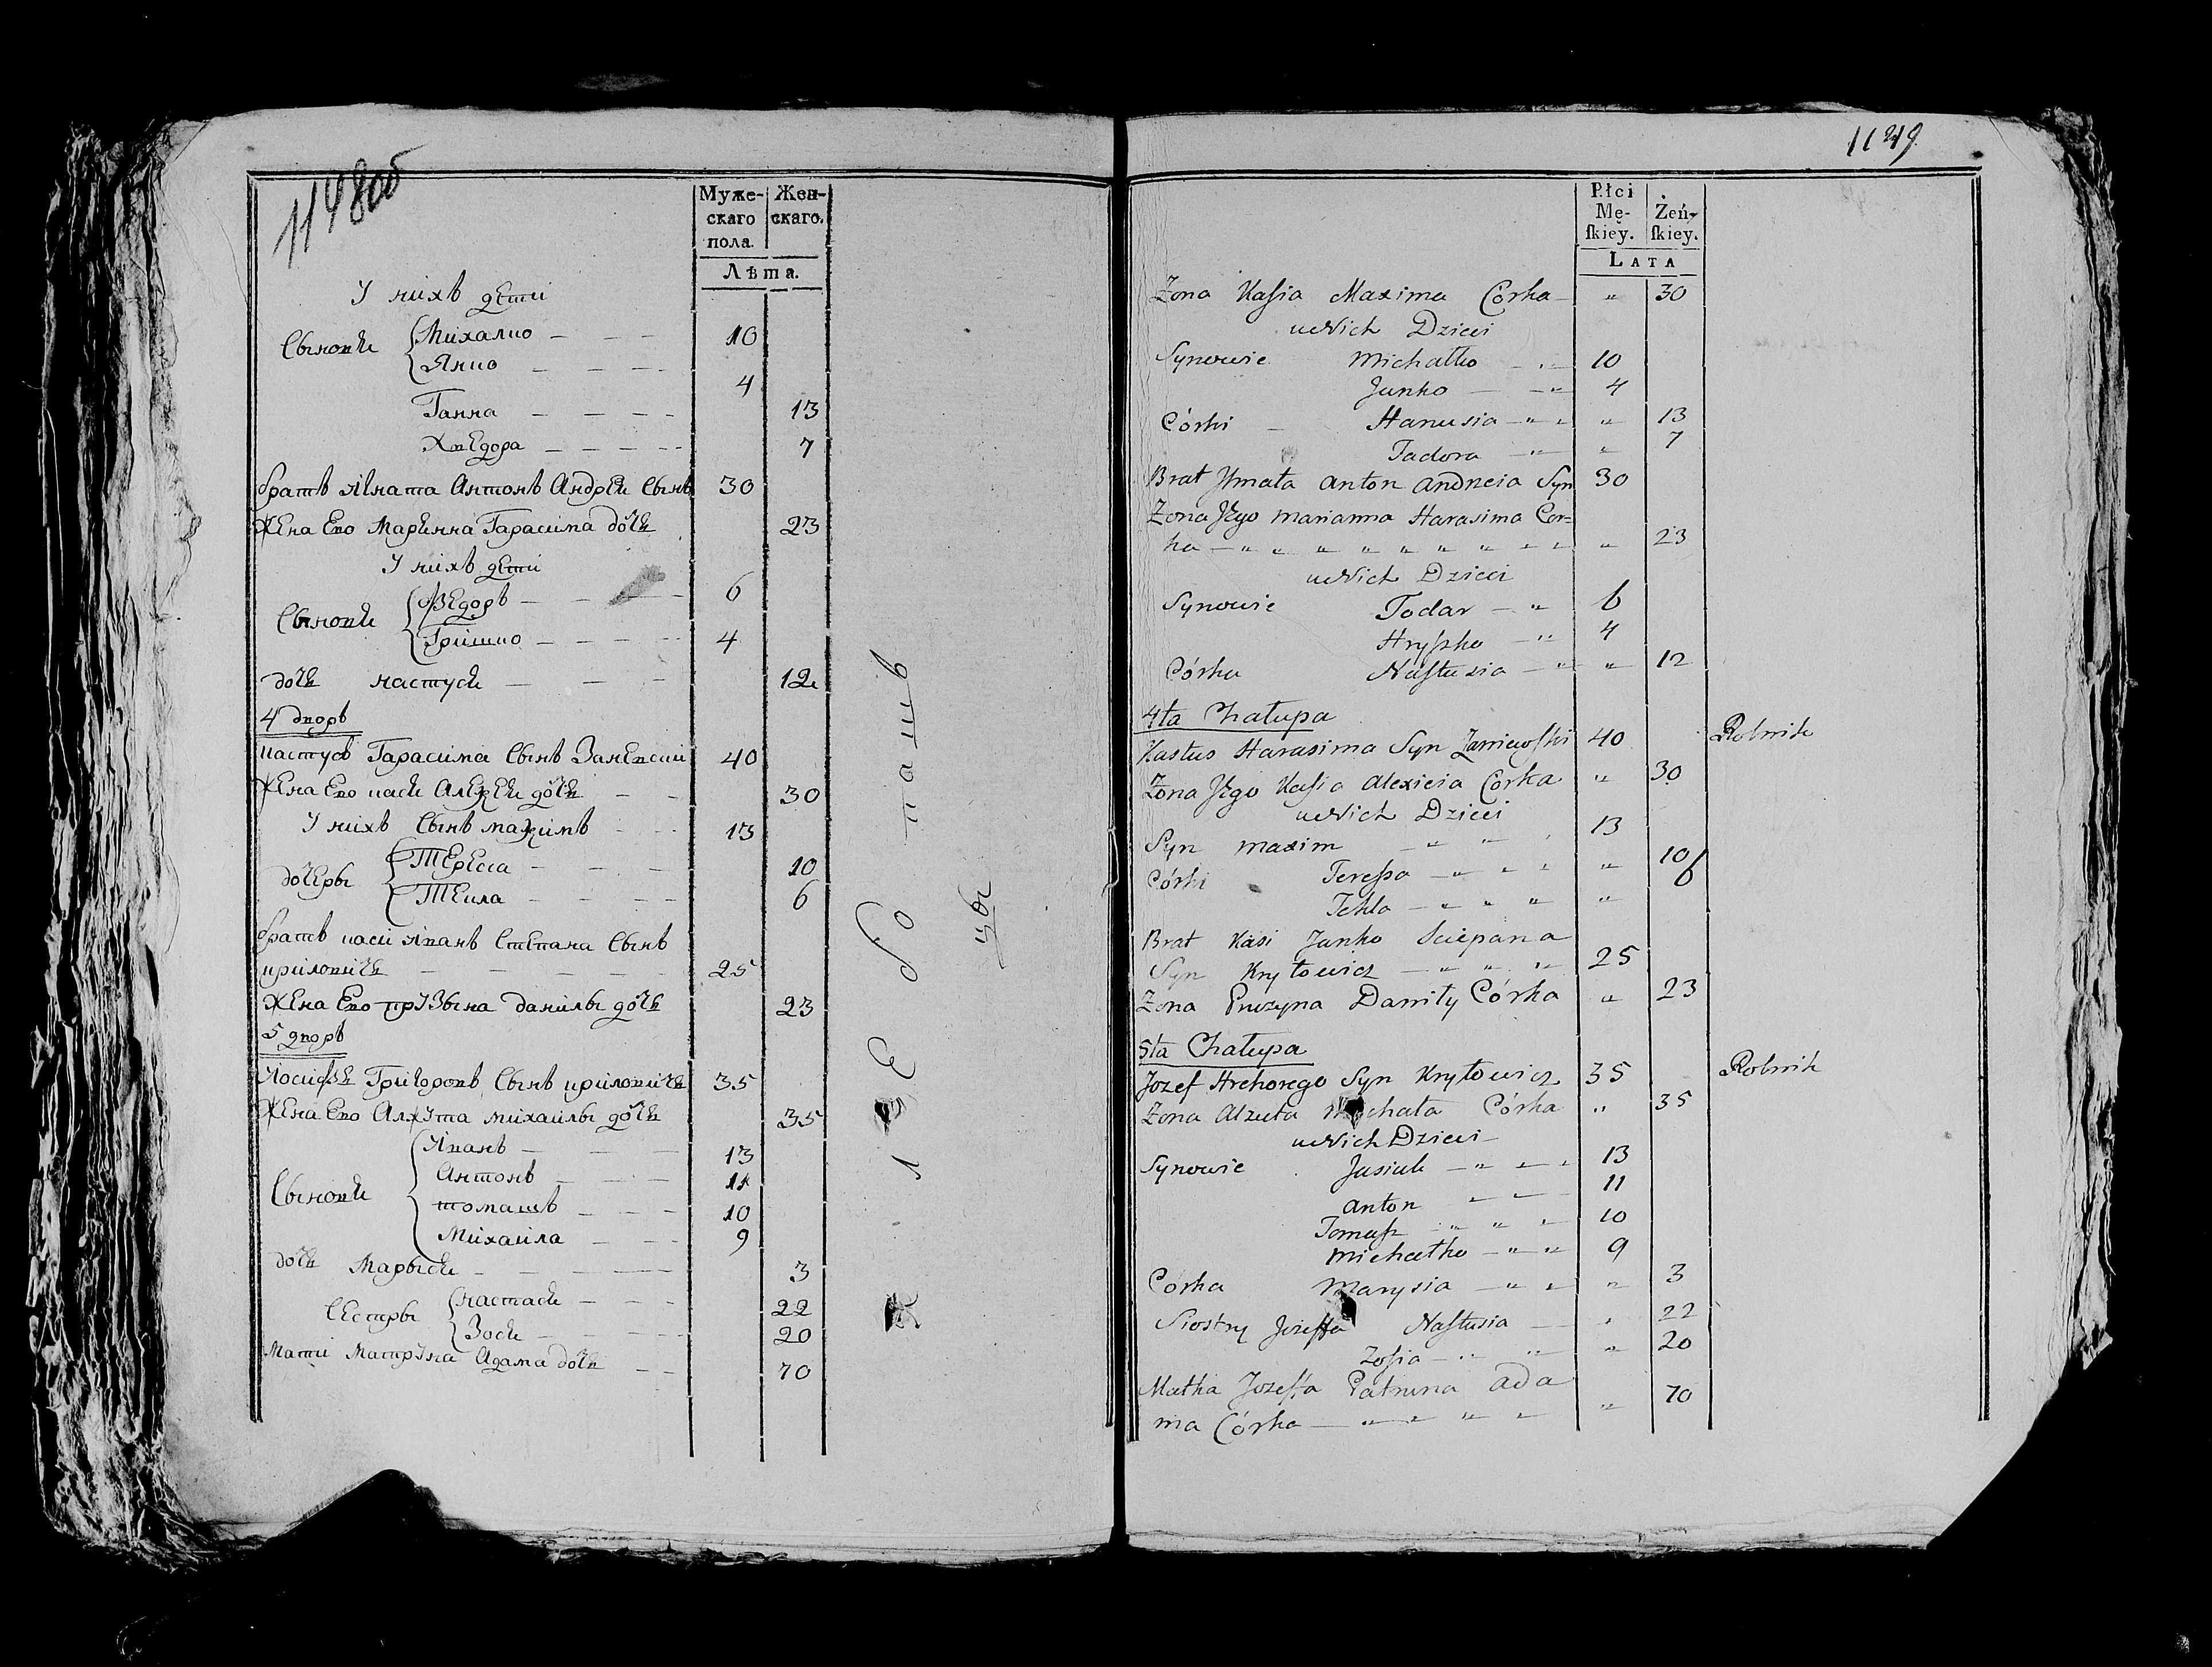 1148об
Муже-
скаго
пола.
Жен-
скаго.
Лѣта.
У нихъ дети
Сыновья Михалко 10
Янко 4
Ганна 13
Хведора 7
братъ Игната Антонъ Андрея Сынъ 30
Жена Ево Маръянна Гарасима дочь 23
У нихъ дети
Сыновья Ѳедоръ 6
Гришко 4
дочь настуся 12
4 дворъ
Кастусь Гарасима Сынъ Заневски 40
Жена Ево кася Алексея дочь 30
У нихъ Сынъ максимъ 13
дочеры Тересса 10
Текла 6
братъ каси Иванъ Степана Сынъ
криловичь 25
Жена Ево прузына данилы дочь 23
5 дворъ
Иосифъ Григоровъ Сынъ криловичь 35
Жена Ево Алжута михаилы дочь 35
Сыновья Иванъ 13
Антонъ 11
томашъ 10
Михаила 9
дочь Марыся 3
Сестры настася 22
Зося 20
Мати Матруна Адама дочь 70
1149
Płci
Mę-
skiey.
Żeń-
skiey.
LATA
Zona Kasia Maxima Corka " 30
u Nich Dzieci
Synowie Michałko 10
Janko 4
Córki Hanusia " 13
Tadora " 7
Brat Ihnata Anton Andrieia Syn 30
Zona Jego Marianna Harasima Cor=
ka " 23
u Nich Dzieci
Synowie Todar 6
Hryszko 4
Córka Nastusia " 12
4ta Chałupa
Kastus Harasima Syn Zaniewski 40 Rolnik
Zona Jego Kasia Alexieia Corka " 30
u Nich Dzieci
Syn Maxim 13
Córki Teressa " 10
Tekla " 6
Brat Kasi Janko Sciepana
Syn Kryłowicz 25
Zona Pruzyna Daniły Córka " 23
5ta Chałupa
Jozef Hrehorego Syn Kryłowicz 35 Rolnik
Zona Alzuta Michała Córka " 35
u Nich Dzieci
Synowie Jasiuk 13
Anton 11
Tomasz 10
Michałko 9
Corka Marysia " 3
Siostry Jozeffa Nastusia " 22
Zosia " 20
Matka Jozeffa Patruna Ada
ma Córka " 70